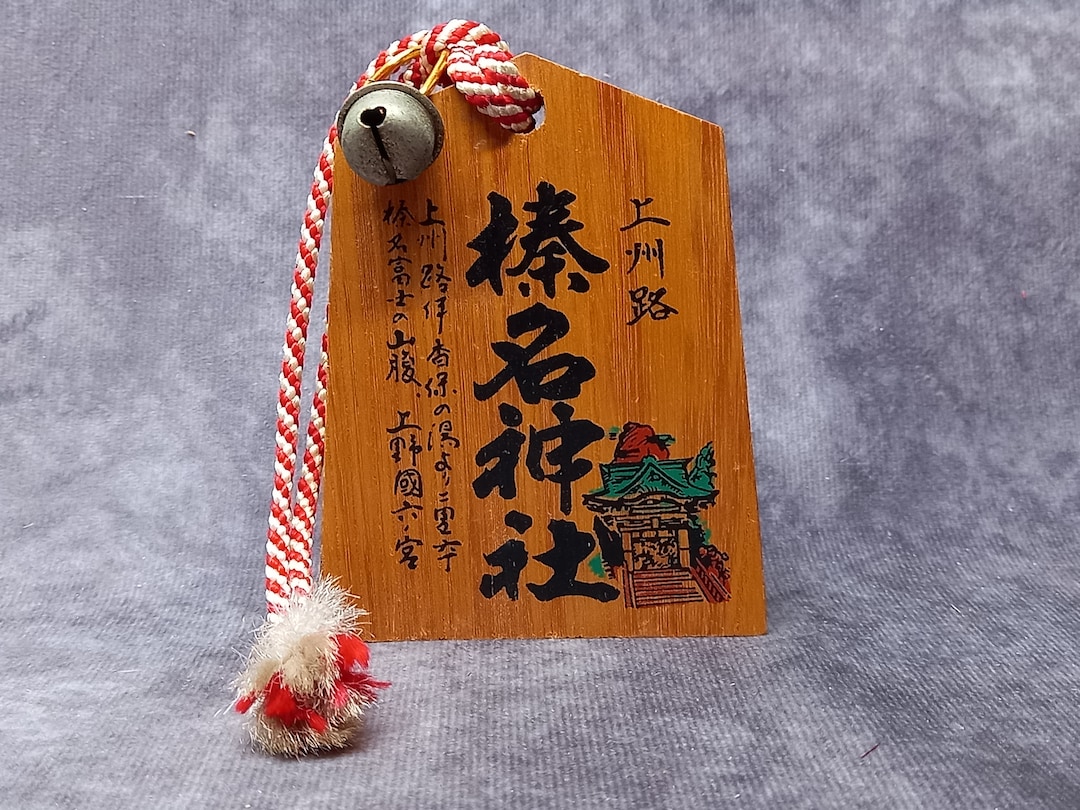 上州路
榛名神社
上州路伊香保の湯より二里半
榛名富士の山腹、上野國六ノ宮